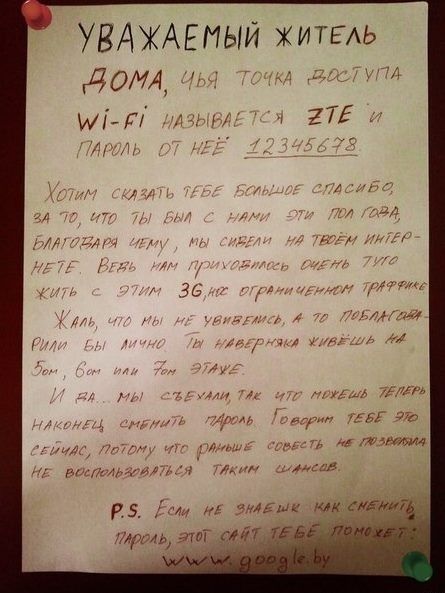 УВАЖАЕМЫЙ ЖИТЕЛЬ
ДОМА, ЧЬЯ ТОЧКА ДОСТУПА
Wi-Fi НАЗЫВАЕТСЯ ZTE И
ПАРОЛЬ ОТ НЕЁ 12345678.
ХОТИМ СКАЗАТЬ ТЕБЕ БОЛЬШОЕ СПАСИБО,
ЗА ТО, ЧТО ТЫ БЫЛ С НАМИ ЭТИ ПОЛ ГОДА,
БЛАГОДАРЯ ЧЕМУ, МЫ СИДЕЛИ НА ТВОЁМ ИНТЕР-
НЕТЕ. ВЕДЬ НАМ ПРИХОДИЛОСЬ ОЧЕНЬ ТУГО
ЖИТЬ С ЭТИМ 3G, ОГРАНИЧЕННОМ ТРАФФИКЕ
ЖАЛЬ, ЧТО МЫ НЕ УВИДЕЛИСЬ, А ТО ПОБЛАГОДА-
РИЛИ БЫ ЛИЧНО. ТЫ НАВЕРНЯКА ЖИВЁШЬ НА
5ом, 6ом ИЛИ 7ом ЭТАЖЕ.
И ДА... МЫ СЪЕХАЛИ, ТАК ЧТО МОЖЕШЬ ТЕПЕРЬ
НАКОНЕЦ СМЕНИТЬ ПАРОЛЬ. ГОВОРИМ ТЕБЕ ЭТО
СЕЙЧАС, ПОТОМУ ЧТО РАНЬШЕ СОВЕСТЬ НЕ ПОЗВОЛЯЛА
НЕ ВОСПОЛЬЗОВАТЬСЯ ТАКИМ ШАНСОМ.
P.S. ЕСЛИ НЕ ЗНАЕШЬ КАК СМЕНИТЬ
ПАРОЛЬ, ЭТОТ САЙТ ТЕБЕ ПОМОЖЕТ:
www.google.by